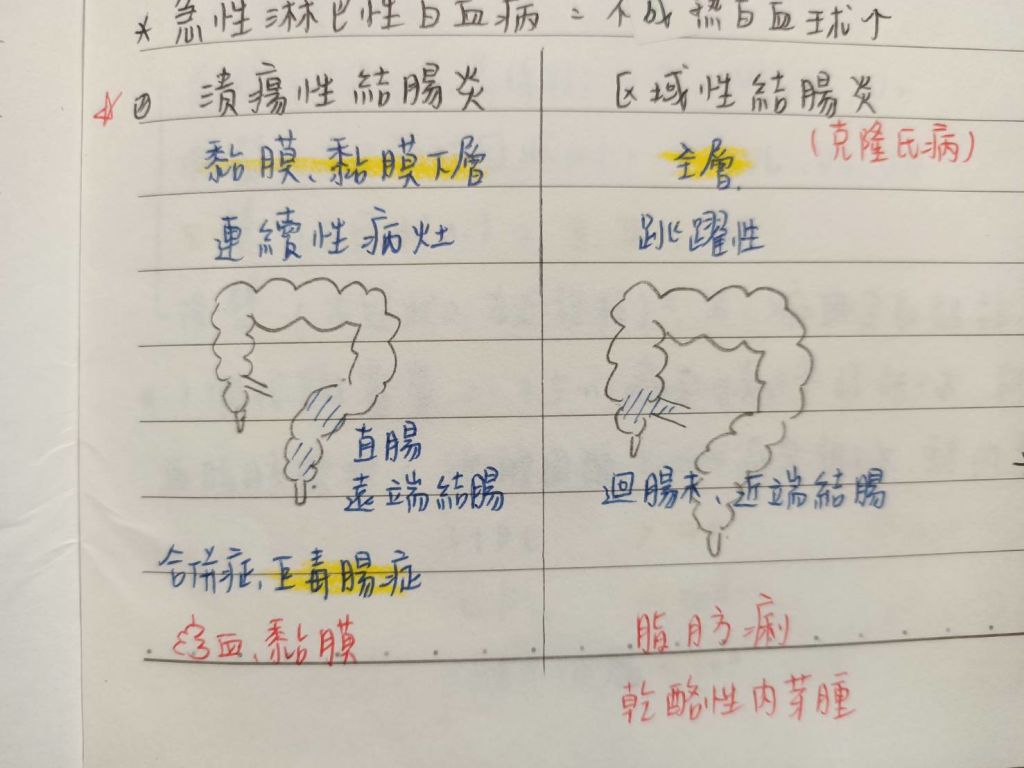 * 急性淋巴性白血病 = 不成熟白血球个
☆ 四 潰瘍性結腸炎
区域性結腸炎
(克隆氏病)
黏膜、黏膜下層
全層
連續性病灶
跳躍性
直腸
遠端結腸
迴腸末、近端結腸
合併症、巨毒腸症
血、黏膜
脂肪痢
乾酪性肉芽腫